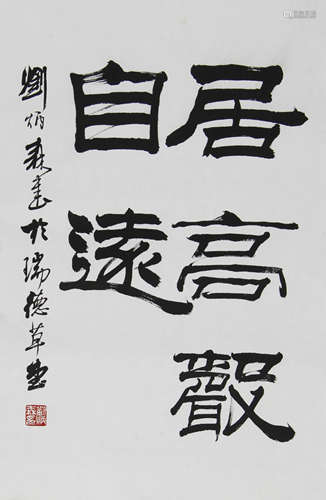 居高聲
自遠
劉炳森書於瑞德草堂